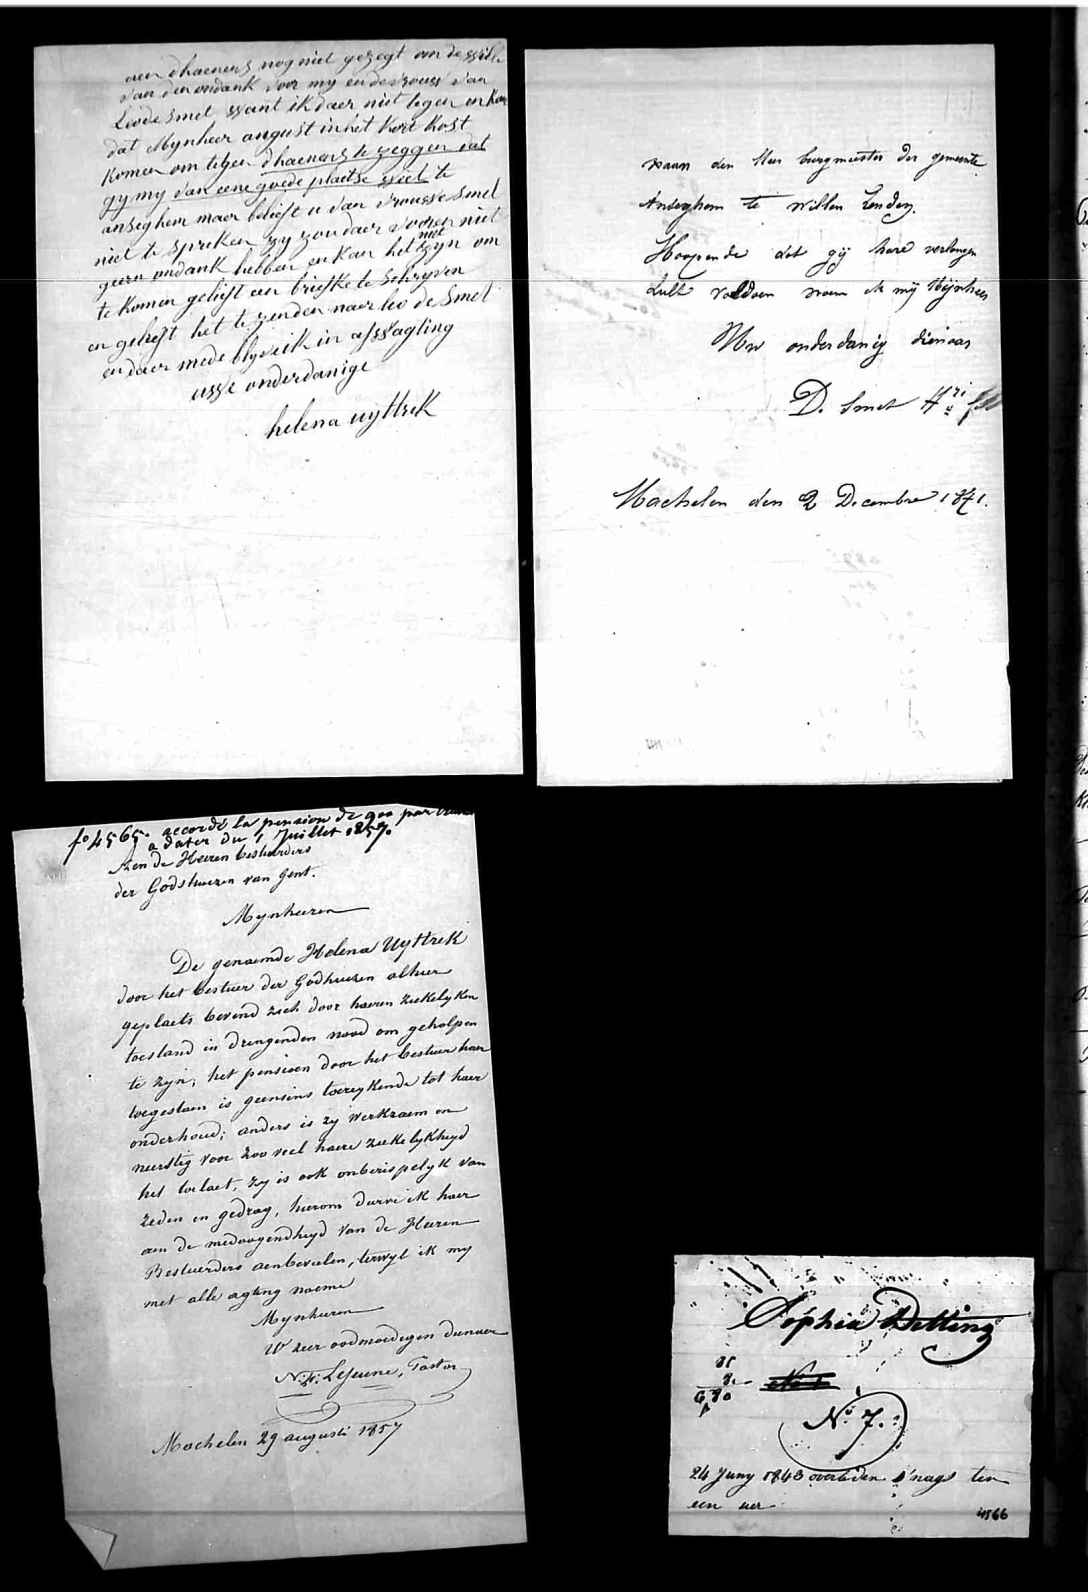 aen dhaenens nog niet gezegt om de wille
van den ondank voor my en de vrouw van
Leo de smet want ik daer niet tegen en kan
dat Mynheer august in het kort kost
komen om tegen dhaenens te zeggen dat
gy my van eene goede plaetse wiet te
anseghem maer belieft u van vrouwe smet
niet te spreken zy zou daer vooren niet
geern ondank hebben en kan het niet zyn om
te komen gelieft een briefke te schryven
en gelieft het te zenden naer leo de Smet
en daer mede blyve ik in afwagting
uwe onderdanige
helena uyttrek
naan den Heer burgmeester der gemeente
Anseghem te willen Zenden.
Hoopende dat gij hare verlangen
zult voldoen noem ik mij Mijnheer
Uw onderdanig dienaar
D. Smet Hri
Machelen den 2 Decembre 1871.
fo 4565. accordé la pension de 900 par
à dater du 1 Juillet 1857.
Aen de Heeren bestierders
der Godshuezen van Gent.
Mynheeren
De genaemde Helena Uyttrek
door het bestier der Godhuezen alhier
geplaets bevind zich door haeren ziekelyken
toestand in dringenden nood om geholpen
te zyn; het pensioen door het bestier haer
toegestaen is geensins toereykende tot haer
onderhoud; anders is zy werkzaem en
neerstig voor zoo veel haere ziekelykheyd
het toelaet, zy is ook onberispelyk van
zeden en gedrag, hierom durve ik haer
aen de medoogendheyd van de Heeren
Bestierders aenbevelen, terwyl ik my
met alle agting noeme
Mynheeren
UW zeer oodmoedigen dienaer
N. F. Lejeune, Pastor
Machelen 29 augusti 1857
Sophia Detting
No 7.
24 Juny 1843 overleden s'nags ten
een uer
4566